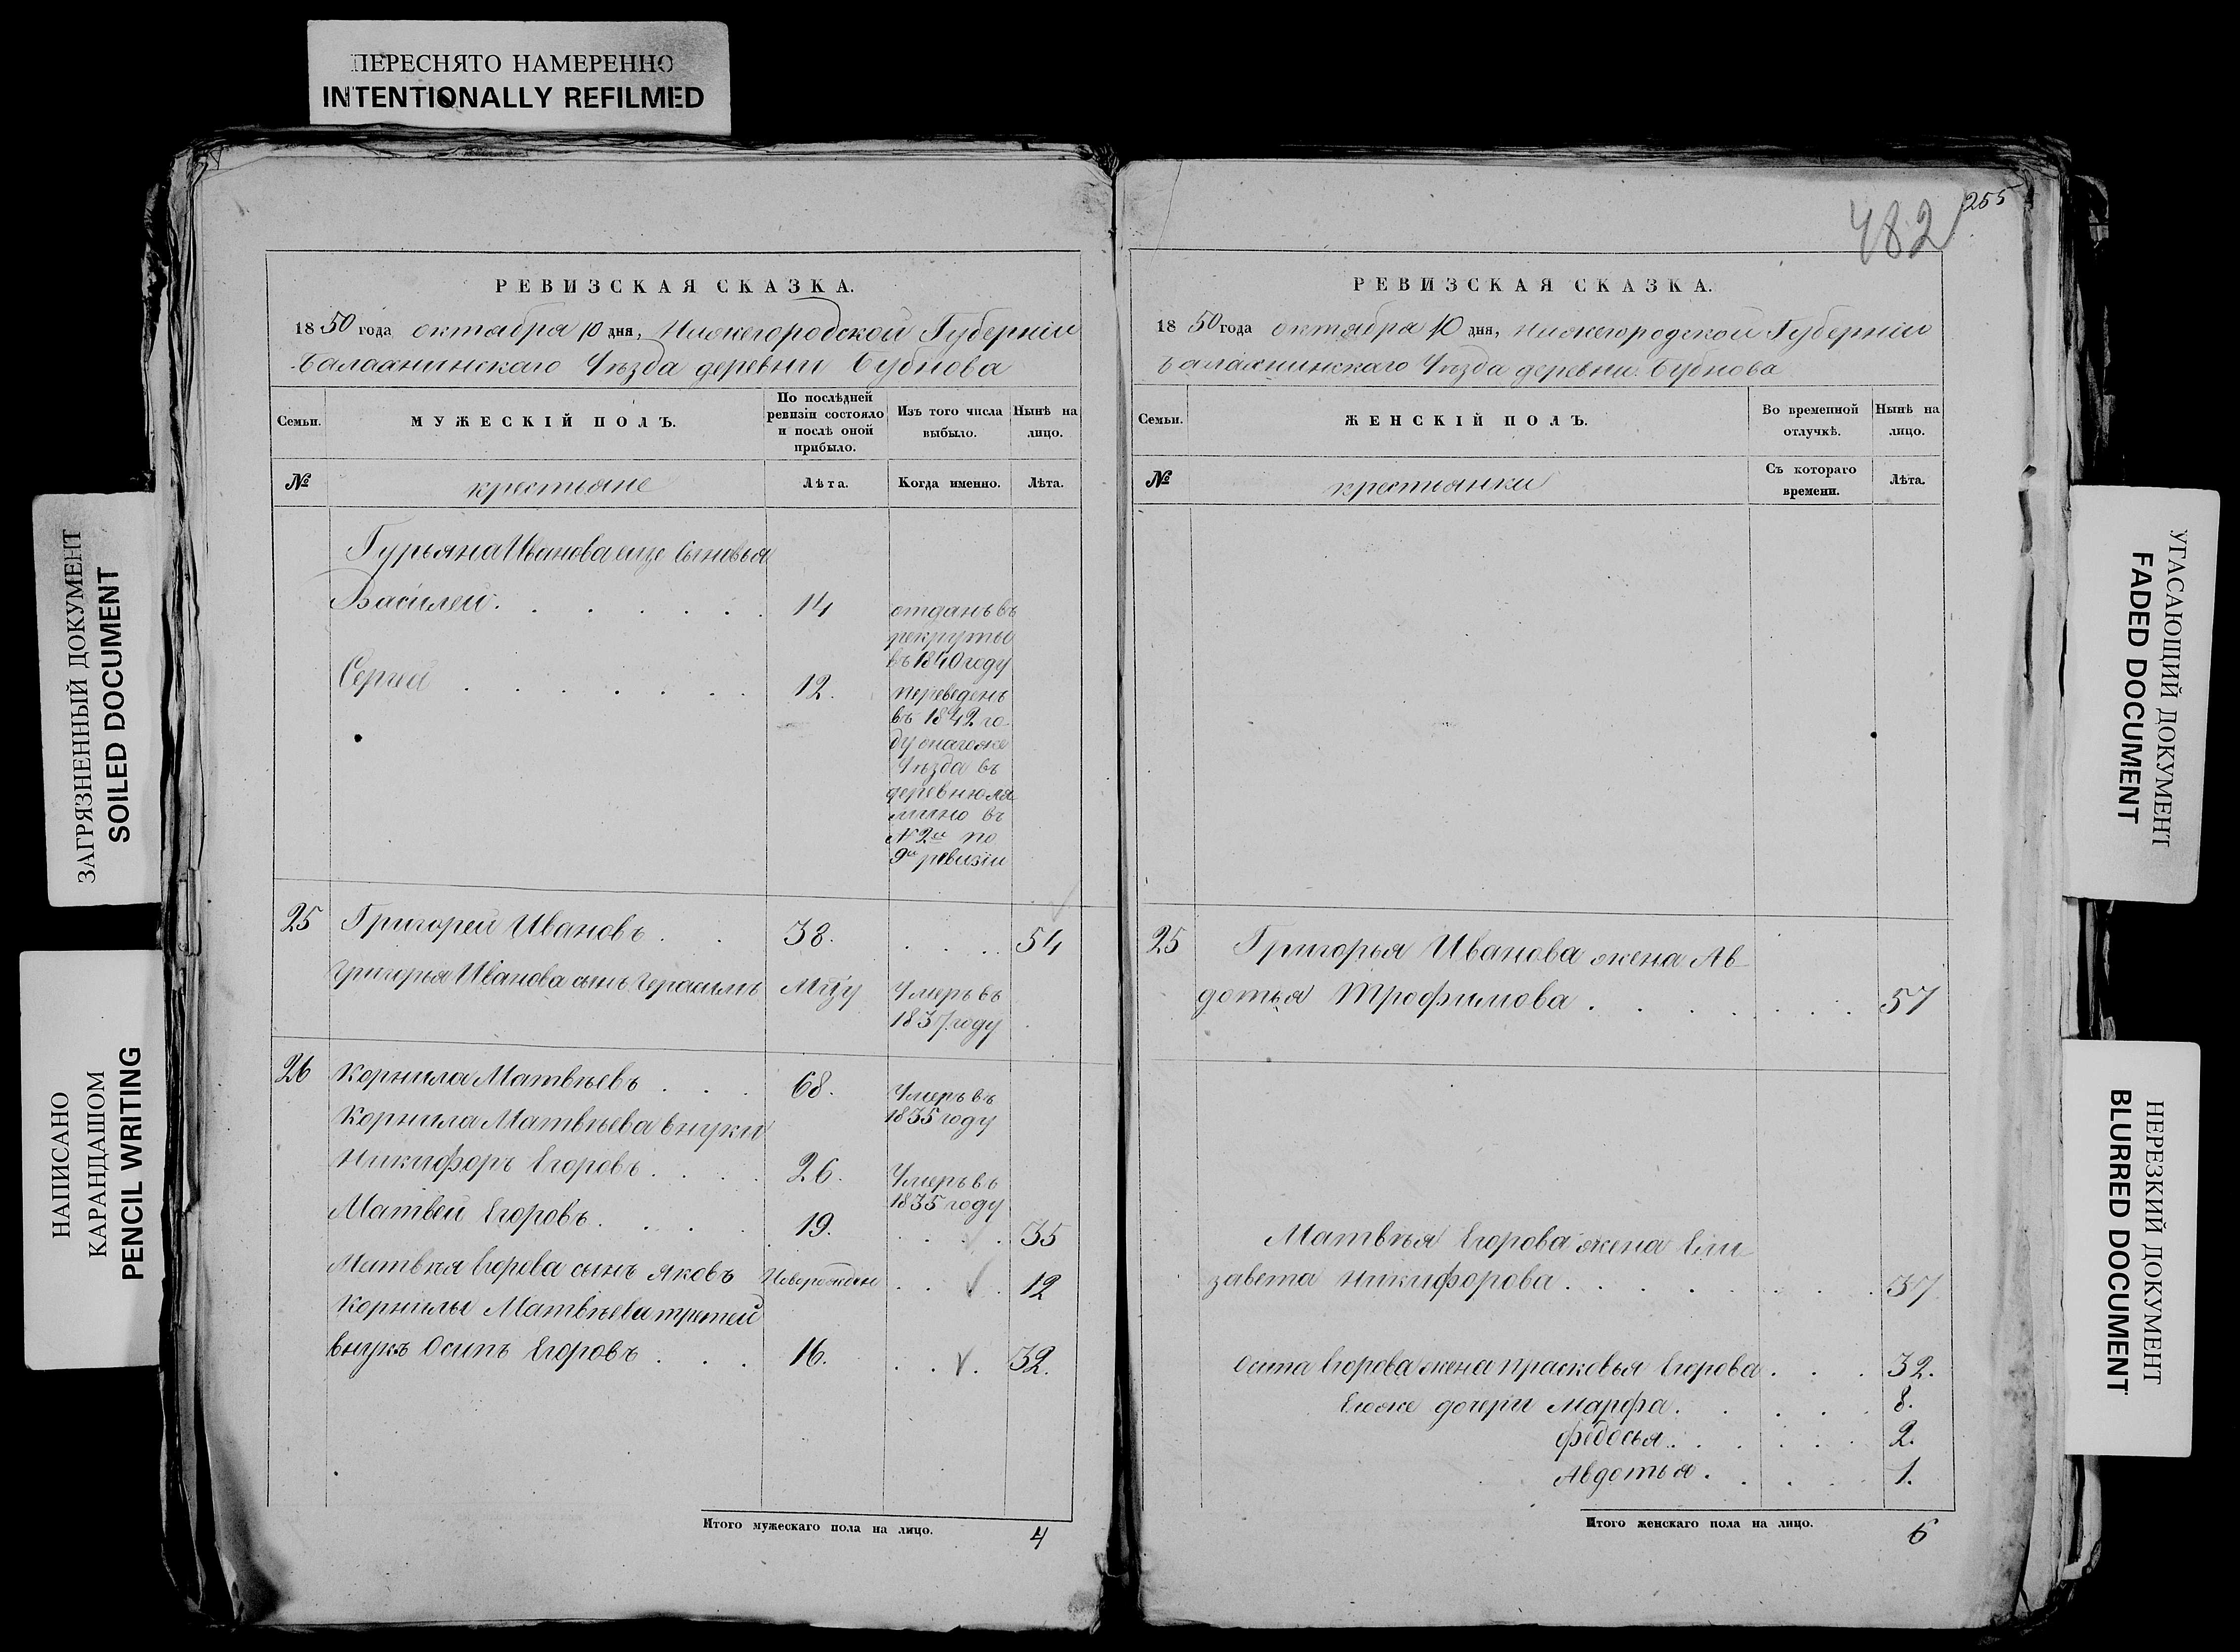 ПЕРЕСНЯТО НАМЕРЕННО
INTENTIONALLY REFILMED
ЗАГРЯЗНЕННЫЙ ДОКУМЕНТ
SOILED DOCUMENT
НАПИСАНО
КАРАНДАШОМ
PENCIL WRITING
РЕВИЗСКАЯ СКАЗКА.
1850 года октября 10 дня, Нижегородской Губернии
Балахнинскаго Уѣзда деревни Бубнова
Семьи.
МУЖЕСКІЙ ПОЛЪ.
По послѣдней
ревизіи состояло
и послѣ оной
прибыло.
Изъ того числа
выбыло.
Нынѣ на
лицо.
№
крестьяне
Лѣта.
Когда именно.
Лѣта.
Гурьяна Иванова еще Сыновья
Василей. 14 отданъ въ
рекруты
въ 1840 году
Сергей 12. переведенъ
въ 1842 го
ду онагоже
Уѣзда въ
деревню
въ
№ 2й по
9й ревизіи
25 Григорей Ивановъ 38. 54
Григорья Иванова сынъ Герасимъ Умеръ въ
1837 году
26 Корнила Матвѣевъ 68. Умеръ въ
1835 году
Корнила Матвѣева внуки
Никифоръ Егоровъ 26. Умеръ въ
1835 году
Матвей Егоровъ 19. 35
Матвѣя Егорова сынъ Яковъ 12
Корнилы Матвѣева третей
внукъ Осипъ Егоровъ 16. 32.
Итого мужескаго пола на лицо. 4
482
255
РЕВИЗСКАЯ СКАЗКА.
1850 года октября 10 дня, Нижегородской Губернии
Балахнинскаго Уѣзда деревни Бубнова
Семьи.
ЖЕНСКІЙ ПОЛЪ.
Во временной
отлучкѣ.
Нынѣ на
лицо.
№
крестьянки
Съ котораго
времени.
Лѣта.
25 Григорья Иванова жена Ав
дотья Трофимова 57
Матвѣя Егорова жена Ели
завета Никифорова 37
Осипа Егорова жена Прасковья Егорова 32.
Егоже дочери Марфа. 8.
Федосья. 2.
Авдотья. 1.
Итого женскаго пола на лицо. 6
УГАСАЮЩИЙ ДОКУМЕНТ
FADED DOCUMENT
НЕРЕЗКИЙ ДОКУМЕНТ
BLURRED DOCUMENT